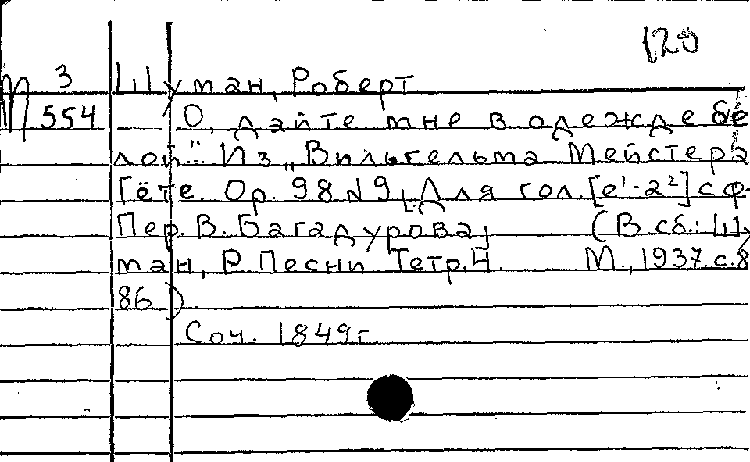 120
М 3 Шуман, Роберт
554 О, дайте мне в одежде бе
лой". Из „Вильгельма Мейстера
Гёте. Op. 98 №9. Для гол. [e¹-a²] с ф-
Пер. В. Багадурова, (В сб.: Шу
ман, Р. Песни Тетр. 4. М., 1937. с. 8
86).
Соч. 1849г.